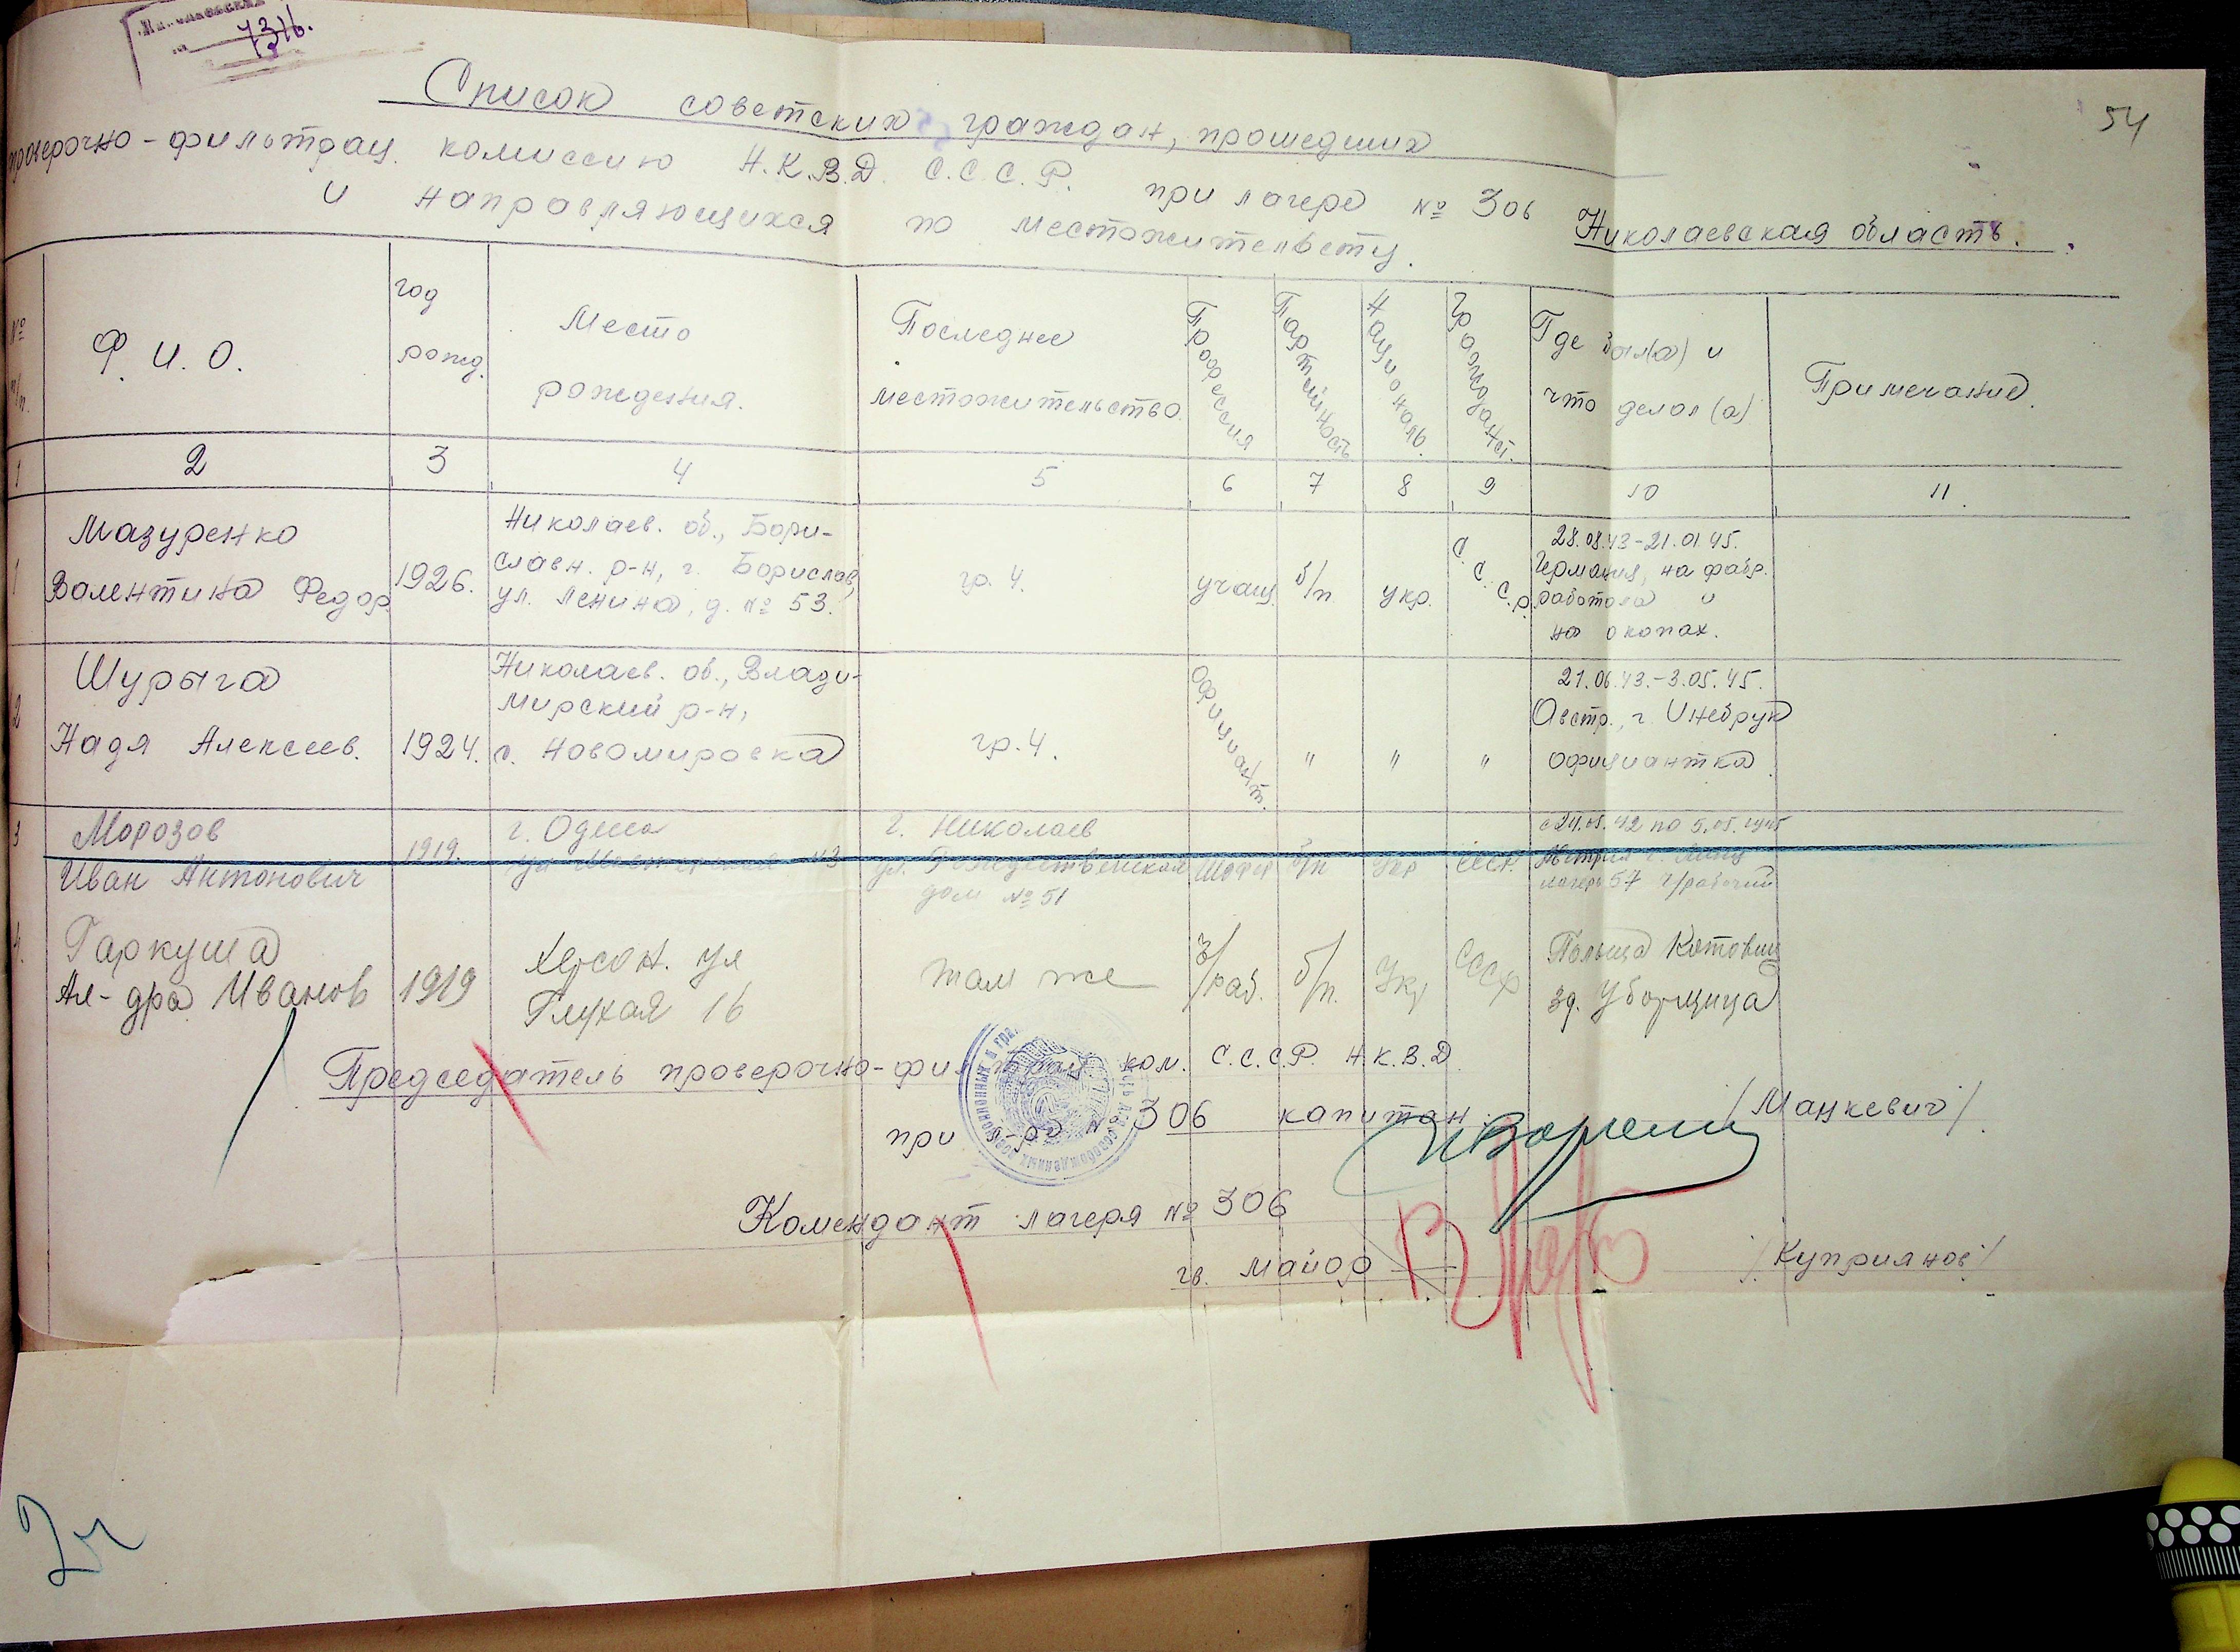 7316.
54
Список советских граждан, прошедших
проверочно-фильтрац. комиссию Н.К.В.Д. С.С.С.Р. при лагере № 306
и направляющихся по местожительству.
Николаевская область.
№ п/п.
Ф. И. О.
год рожд.
Место рождения.
Последнее местожительство.
Профессия
Партийность
Националь.
Гражданст.
Где был(а) и что делал(а)
Примечание.
1 2 3 4 5 6 7 8 9 10 11.
1 Мазуренко Валентина Федор. 1926.
Николаев. об., Бори-
славн. р-н, г. Борислав,
ул. Ленина, д. № 53.
гр. 4. учащ. б/п. укр. С.С.С.Р.
28.08.43-21.01.45.
Германия, на фабр.
работала и
на окопах.
2 Шурыга Надя Алексеев. 1924.
Николаев. об., Влади-
мирский р-н,
с. Новомировка
гр. 4. Официант. " " "
21.06.43.-3.05.45.
Австр., г. Инсбрук
официантка.
3 Морозов Иван Антонович 1919.
г. Одесса
ул.
г. Николаев
ул. Рождественская
дом № 51
шофер б/п укр СССР.
по 5.05.1945
Австрия г. Линц
лагерь 57 ч/рабочий
4. Гаркуша
Ал-дра Иванов 1919
Херсон. ул
Глухая 16
там же
/раб. б/п. Укр СССР
Польша Котовиц
зд. Уборщица
Председатель проверочно-фильтрац. ком. С.С.С.Р. Н.К.В.Д.
при л-ре № 306 капитан /Манкевич/
Комендант лагеря № 306
гв. майор /Куприянов/